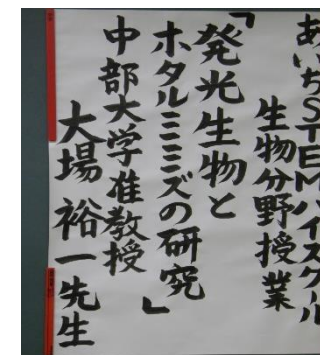 あいちSTEMハイスクール
生物分野授業
「発光生物と
ホタルミミズの研究」
中部大学准教授
大場 裕一先生